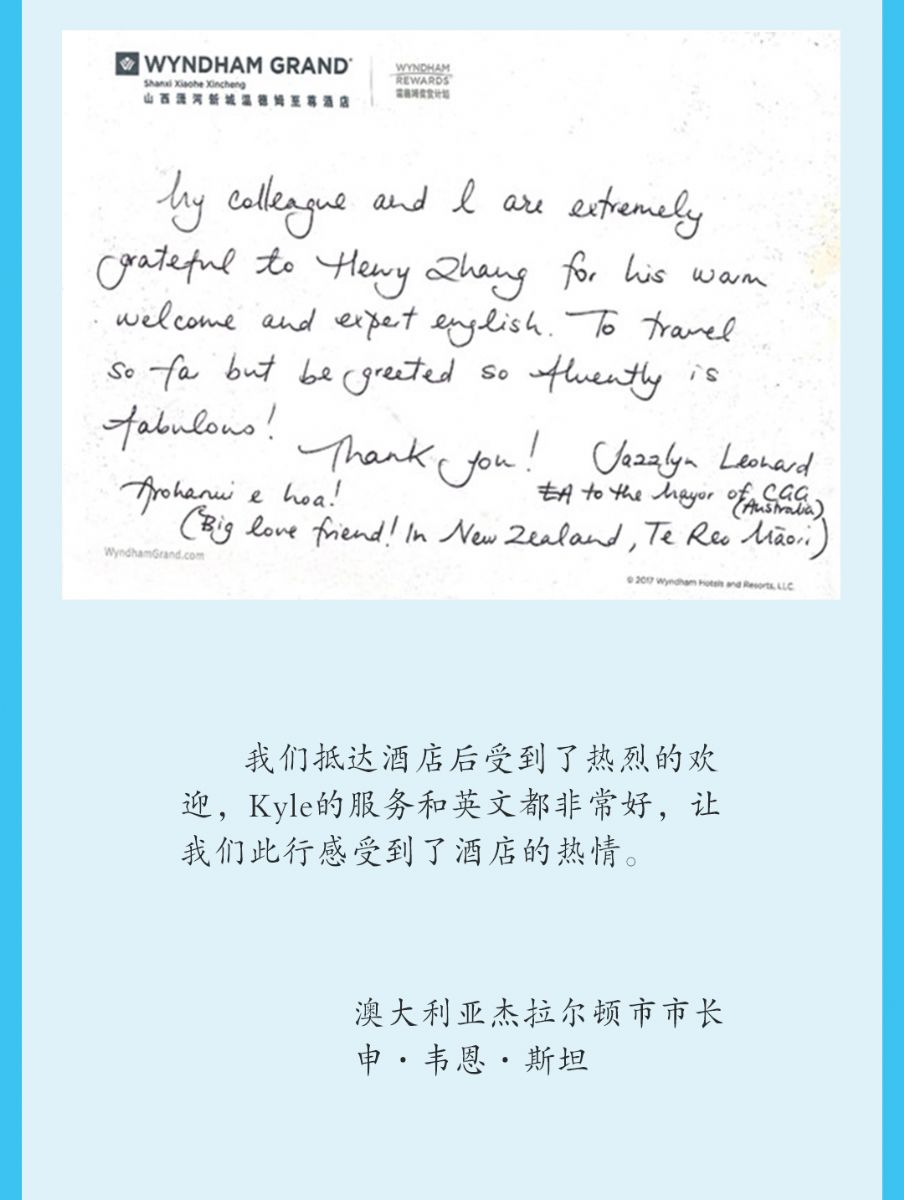 WYNDHAM GRAND
Shanxi Xiaohe Xincheng
山西潇河新城温德姆至尊酒店
WYNDHAM
REWARDS
温德姆奖赏计划
My colleague and I are extremely
grateful to Henry Zhang for his warm
welcome and expert english. To travel
so far but be greeted so fluently is
fabulous!
Thank you! Jazzlyn Leonard
Arohanui e hoa! EA to the Mayor of CGG
(Australia)
(Big love friend! In New Zealand, Te Reo Māori)
WyndhamGrand.com
© 2017 Wyndham Hotels and Resorts, LLC.
我们抵达酒店后受到了热烈的欢
迎，Kyle的服务和英文都非常好，让
我们此行感受到了酒店的热情。
澳大利亚杰拉尔顿市市长
申·韦恩·斯坦